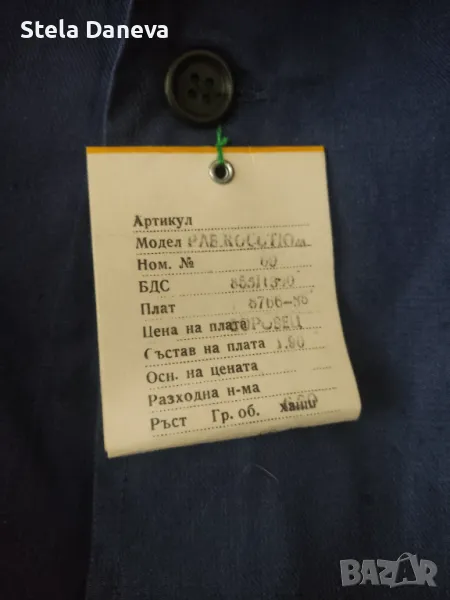 Stela Daneva
Артикул
Модел РАБ.КОСТЮМ
Ном. № 60
БДС
Плат 8766-88
Цена на плата
Състав на плата 1.90
Осн. на цената
Разходна н-ма
Ръст Гр. об.
BAZAR